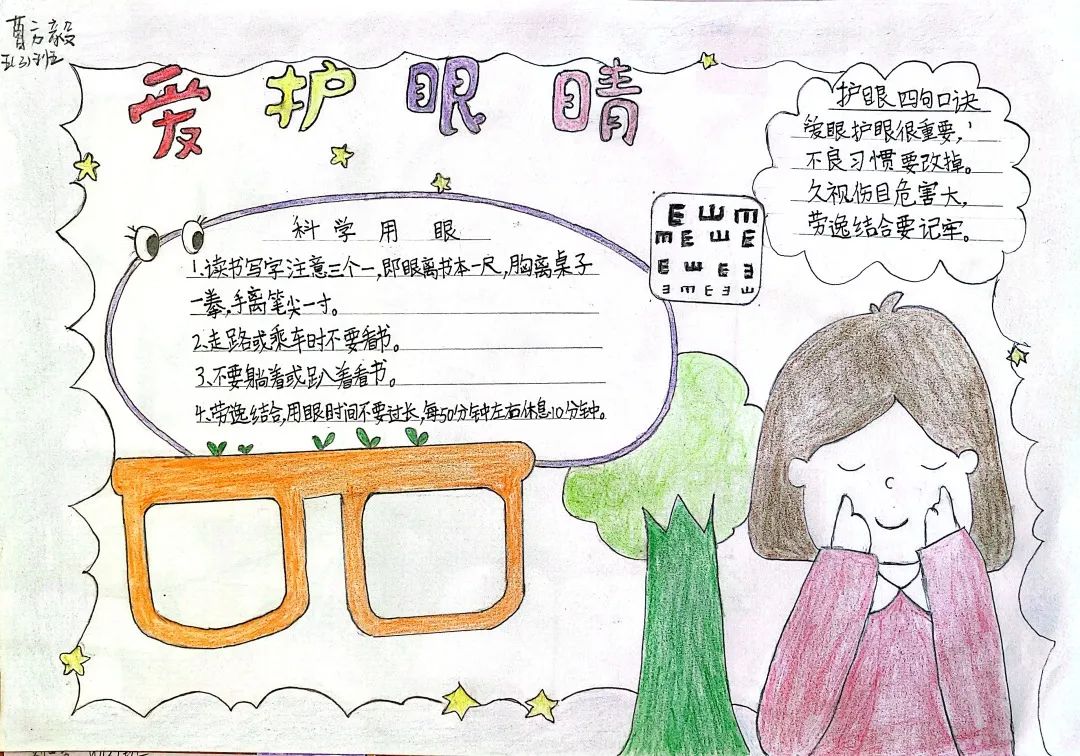 爱护眼睛
护眼四句口诀
爱眼护眼很重要，
不良习惯要改掉。
久视伤目危害大，
劳逸结合要记牢。
科学用眼
1.读书写字注意三个一,即眼离书本一尺,胸离桌子
一拳,手离笔尖一寸。
2.走路或乘车时不要看书。
3.不要躺着或趴着看书。
4.劳逸结合,用眼时间不要过长,每50分钟左右休息10分钟。
E E E
E E E E
E E E E
E E E E E